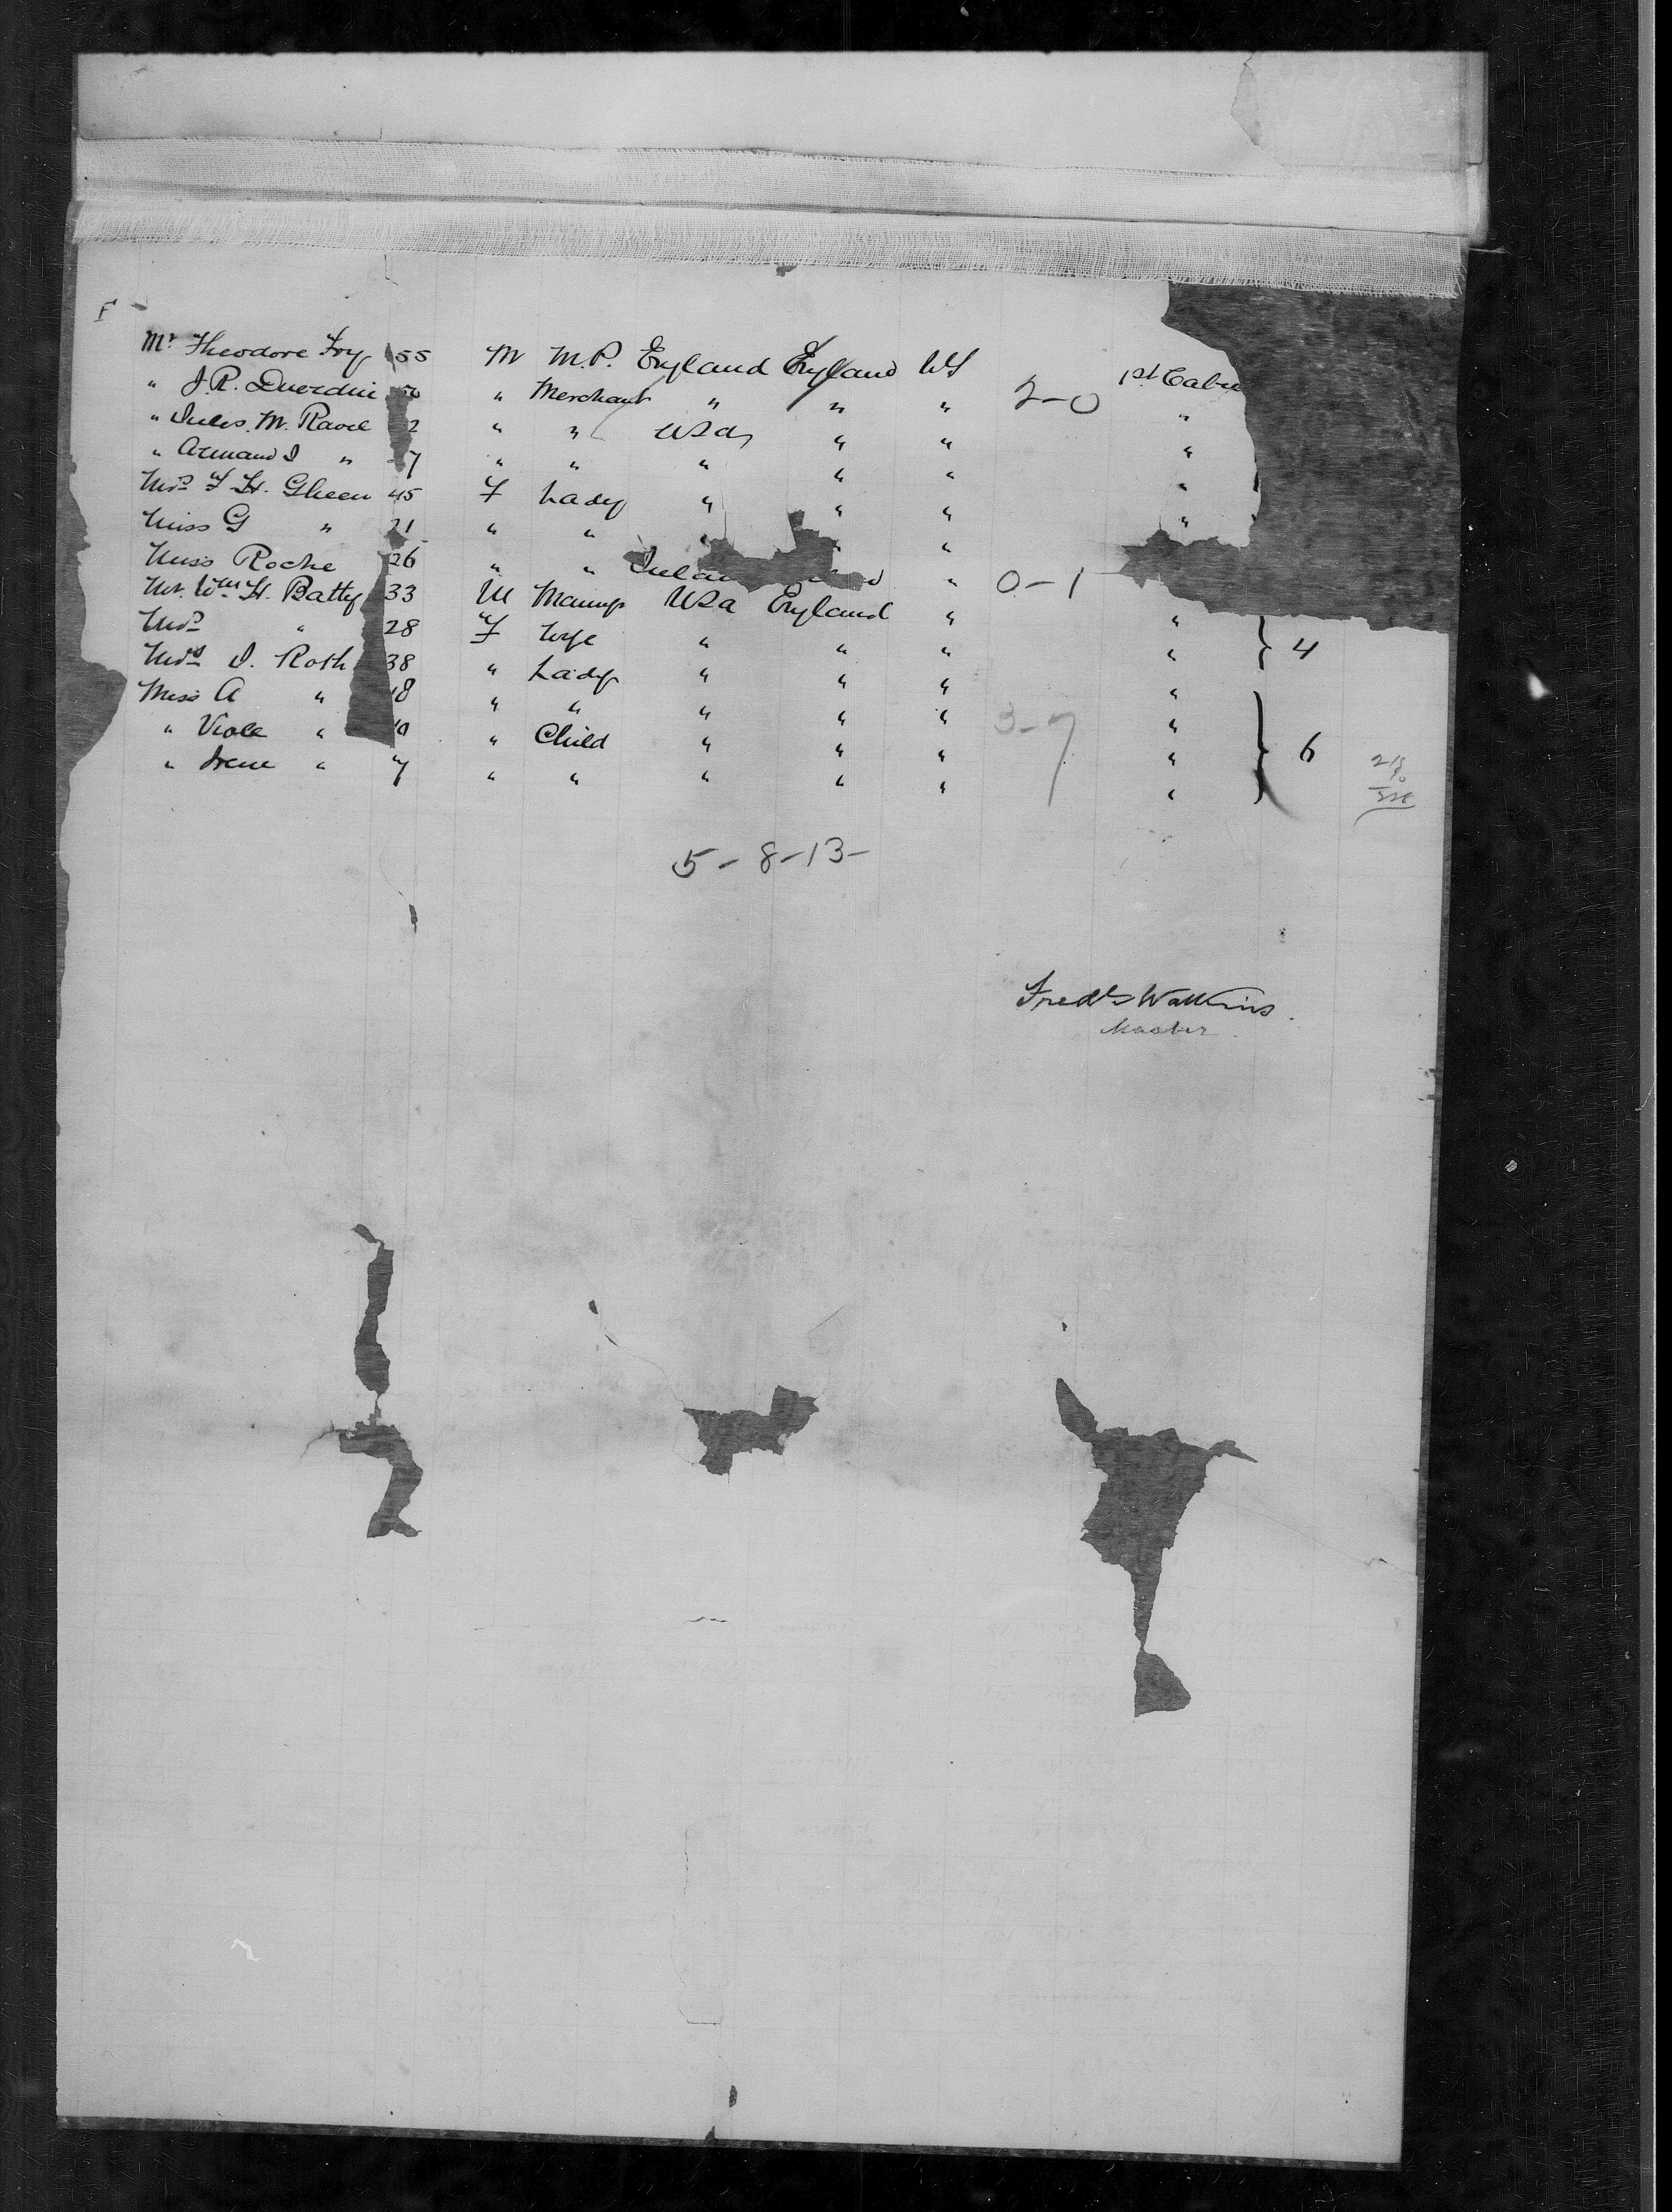 Mr Theodore Fry 55 M M.P. England England US 1st Cabin
" J. R. Duerdin " Merchant " " " 2-0 "
" Jules. M. Ravel 2 " " USA " " "
" Armand J " 7 " " " " " "
Mrs F. H. Gheen 45 F Lady " " " "
Miss G " 21 " " " "
Miss Roche 26 " " " 0-1
Mr. Wm H. Batty 33 M USA England " "
Mrs " 28 F Wife " " " " } 4
Mrs J. Roth 38 " Lady " " " "
Miss A " 18 " " " " " "
" Viola " 10 " Child " " " 3-7 " } 6
" Irene " 7 " " " " " "
5-8-13-
Fredk Watkins.
Master